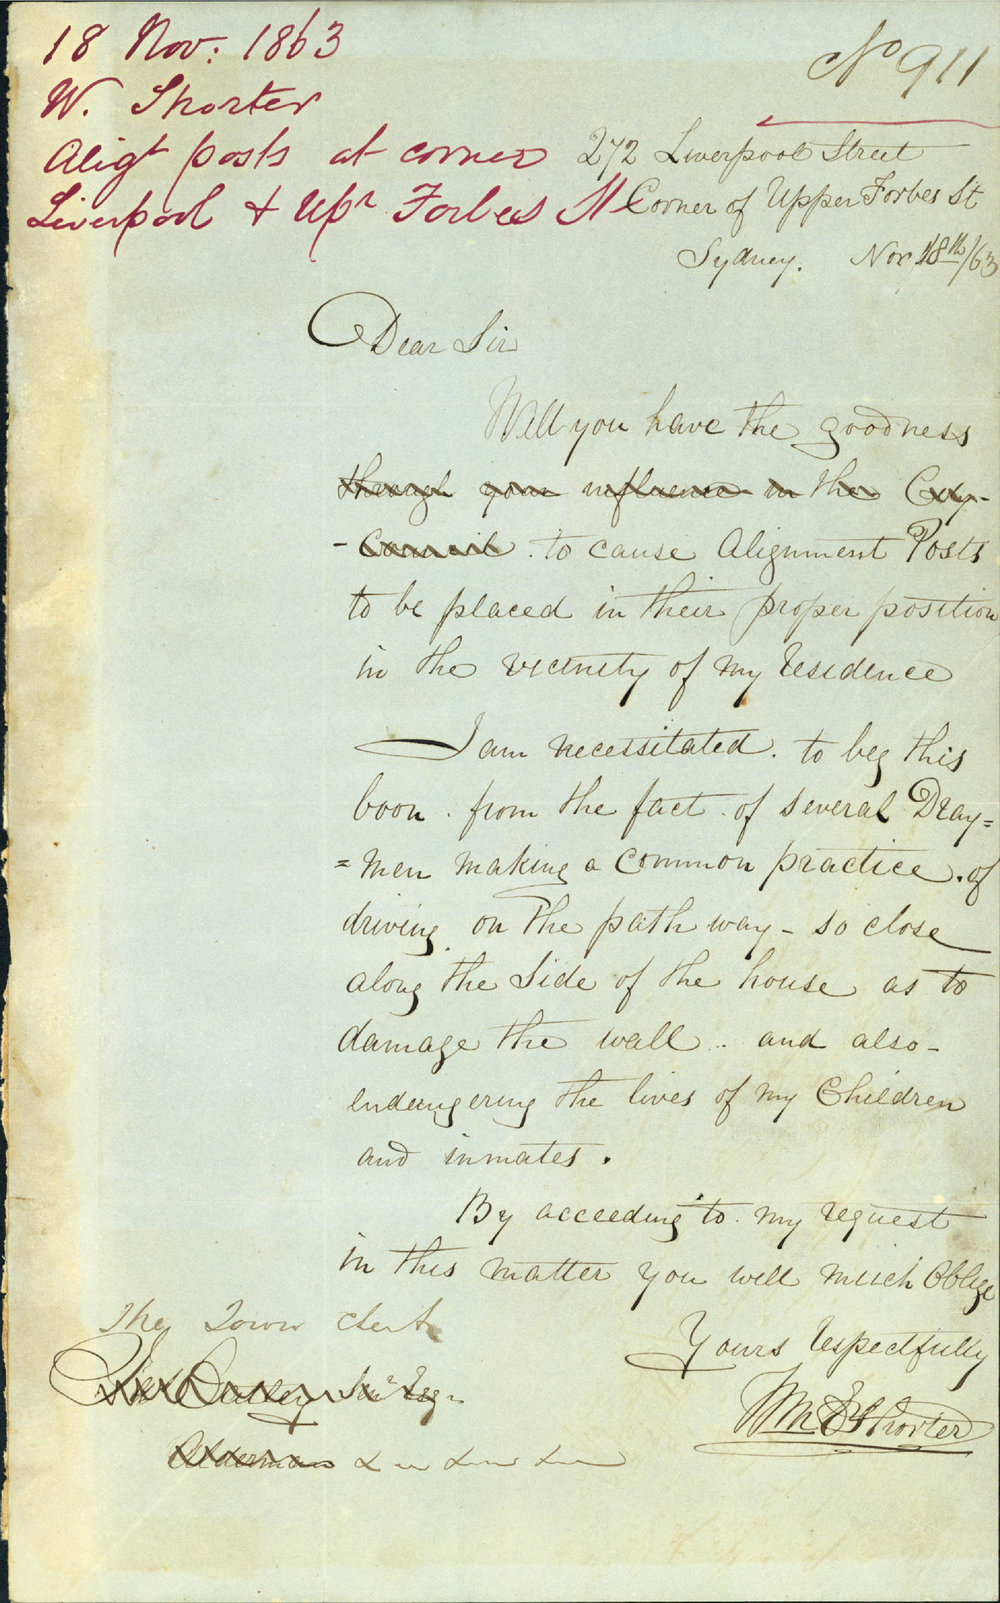 18 Nov: 1863
W. Shorter
Aligt posts at corner
Liverpool & Upr Forbes St
No 911
272 Liverpool Street
Corner of Upper Forbes St
Sydney. Nov 18th/63
Dear Sir
Will you have the goodness
through your influence in the City-
-Council to cause Alignment Posts
to be placed in their proper position
in the vicinity of my residence
I am necessitated. to beg this
boon. from the fact. of several Dray=
=men making a common practice. of
driving on the path way - so close
along the side of the house as to
damage the wall .. and also -
endangering the lives of my Children
and inmates.
By acceeding to my request
in this matter you will much Oblige
Yours respectfully
Wm E Shorter
The Town Clerk
Esq
Alderman